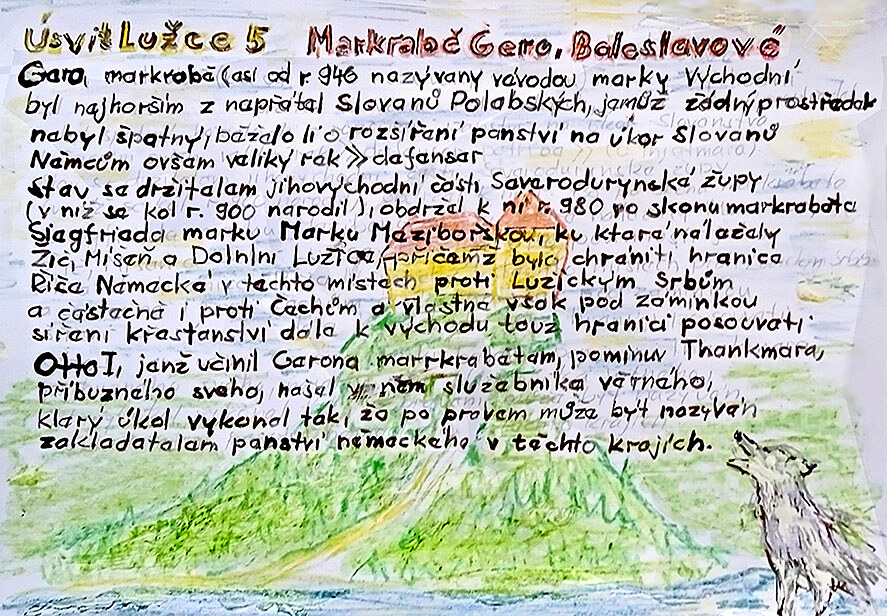 Úsvit Lužce 5 Markrabě Gero, Boleslavové
Gero, markrabě (asi od r 946 nazývaný vévodou) marky Východní
byl nejhorším z nepřátel Slovanů Polabských, jemuž žádný prostředek
nebyl špatný, běželo li o rozšíření panství na úkor Slovanů
Němcům ovšem veliký rek » defensor
Stav se držitelem jihovýchodní části Severodurynské župy
(v níž se kol r. 900 narodil), obdržel k ní r. 980 po skonu markraběte
Siegfrieda marku Marku Meziborskou, ku které náležely
Žic, Míšeň a Dolnlní Lužice, přičemž bylo chrániti hranice
Říše Německé v těchto místech proti Lužickým Srbům
a částečně i proti Čechům a vlastně však pod záminkou
šíření křesťanství dále k východu touž hranici posouvati
Otto I, jenž učinil Gerona marrkrabětem, pominuv Thankmara,
příbuzného svého, našel v něm služebníka věrného,
který úkol vykonal tak, že po právem může být nazýván
zakladatelem panství německého v těchto krajích.